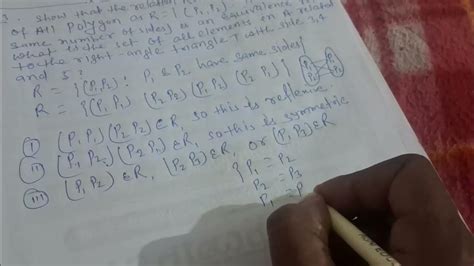 3. Show that the relation
of All Polygon as R = {(P₁ P₂)
same number of sides} is an equivalence
what is the set of all elements in related
to the right angle triangle T with side 3,4
and 5?
R = {(P₁ P₂) : P₁ & P₂ have same sides}
R = {(P₁ P₁) (P₂ P₂) (P₁ P₂) (P₂ P₁)}
P₁ P₁
P₂ P₂
(I) (P₁ P₁) (P₂ P₂) ∈ R, so this is reflexive
(II) (P₁ P₂) (P₂ P₁) ∈ R, so this is symmetric
(III) (P₁ P₂) ∈ R, (P₂ P₃) ∈ R, or (P₁ P₃) ∈ R
{ P₁ = P₂
P₂ = P₃
P₁ = P